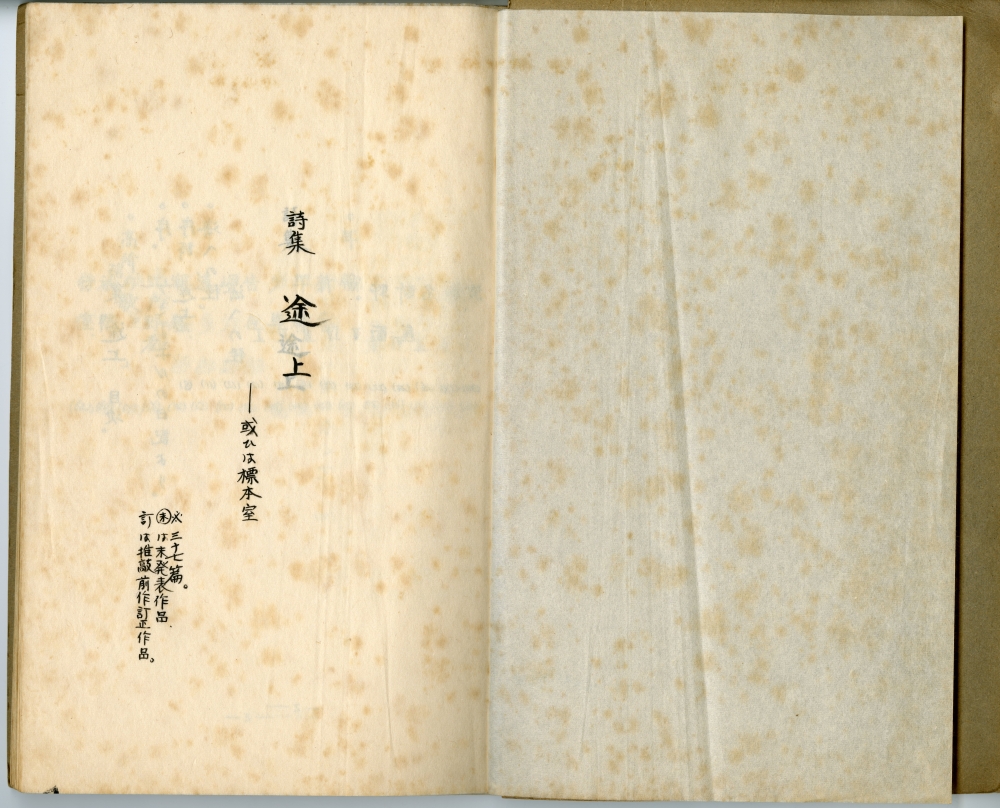 詩集 途上
――或ひは標本室
※三十七篇。
㊤は未発表作品.
訂は推敲前作訂正作品。